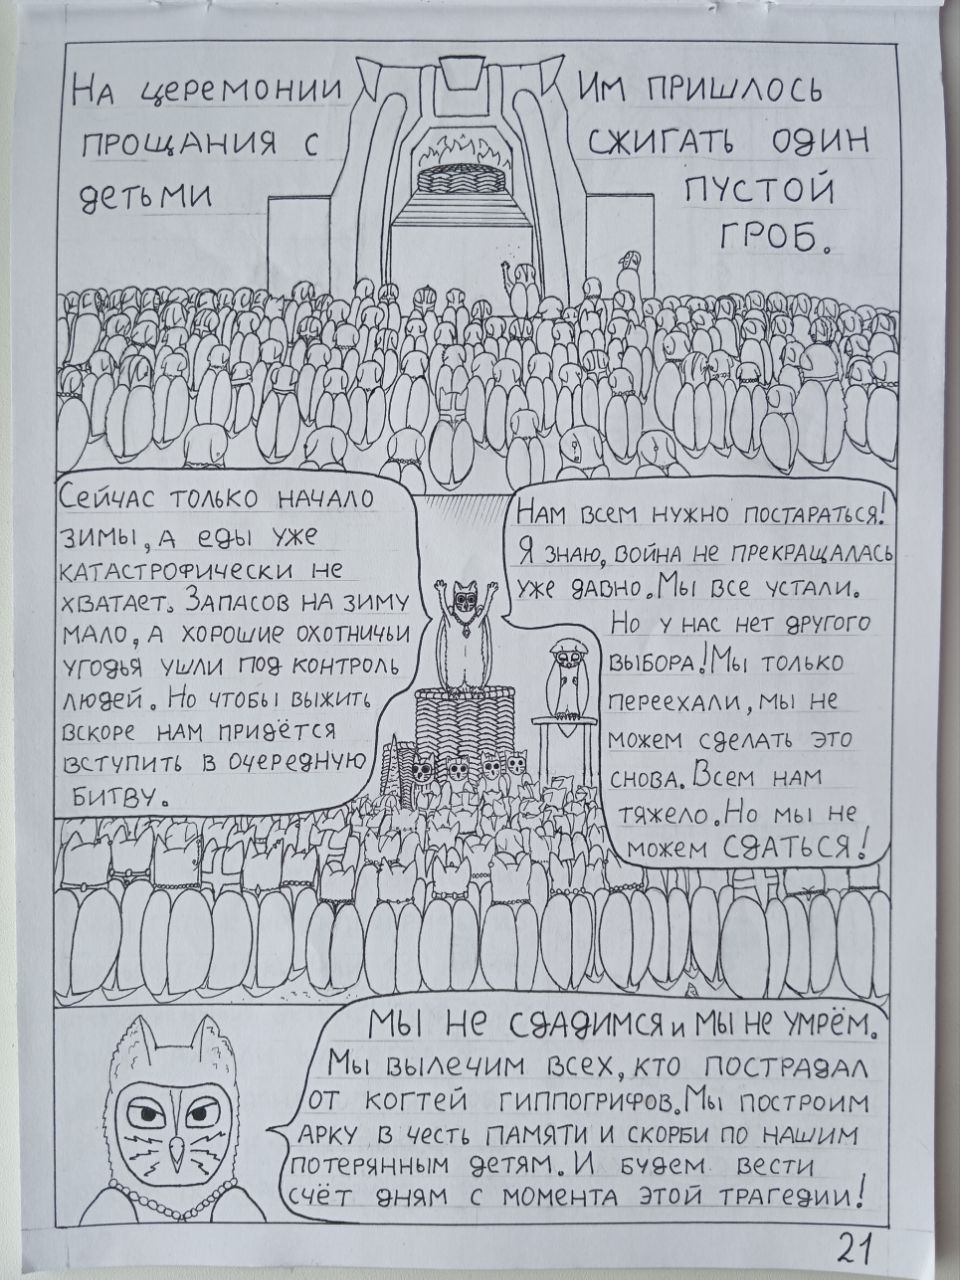 На церемонии
прощания с
детьми
Им пришлось
сжигать один
пустой
гроб.
Сейчас только начало
зимы, а еды уже
катастрофически не
хватает. Запасов на зиму
мало, а хорошие охотничьи
угодья ушли под контроль
людей. Но чтобы выжить
вскоре нам придётся
вступить в очередную
битву.
Нам всем нужно постараться!
Я знаю, война не прекращалась
уже давно. Мы все устали.
Но у нас нет другого
выбора! Мы только
переехали, мы не
можем сделать это
снова. Всем нам
тяжело. Но мы не
можем СДАТЬСЯ!
Мы не сдадимся и мы не умрём.
Мы вылечим всех, кто пострадал
от когтей гиппогрифов. Мы построим
арку в честь памяти и скорби по нашим
потерянным детям. И будем вести
счёт дням с момента этой трагедии!
21